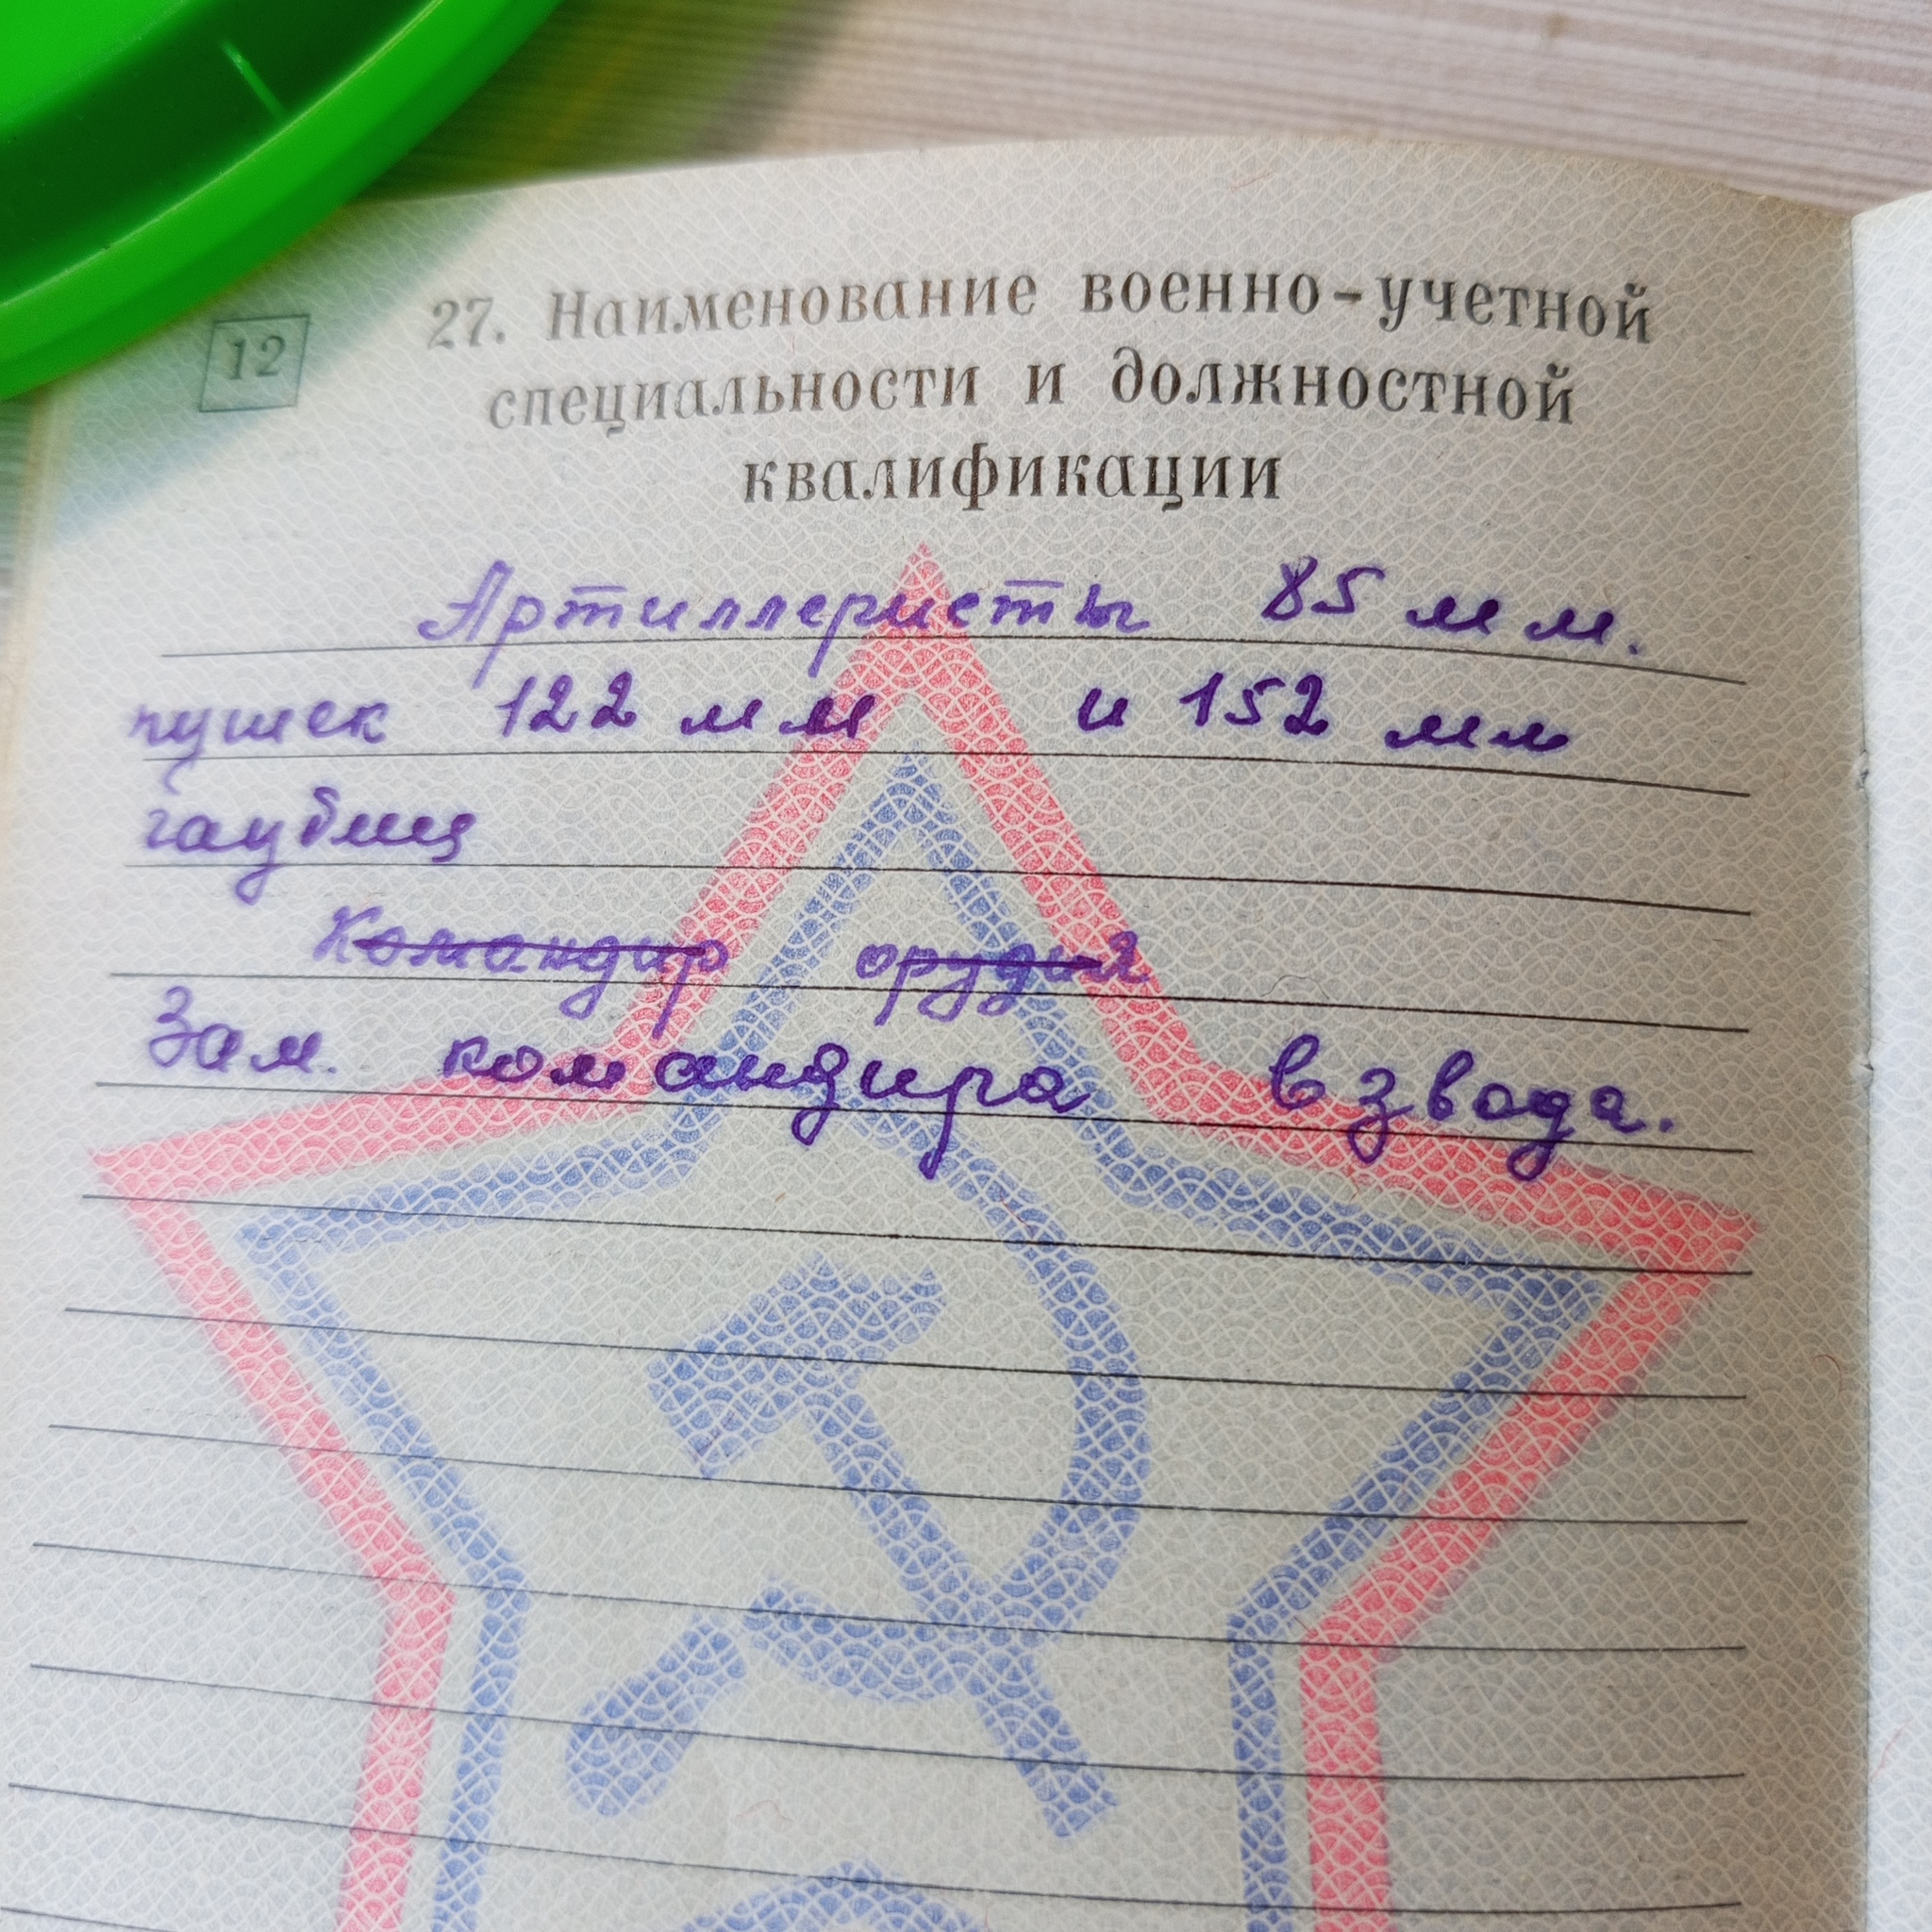 12
27. Наименование военно-учетной
специальности и должностной
квалификации
Артиллеристы 85 мм.
пушек 122 мм и 152 мм
гаубиц
Командир орудия
Зам. командира взвода.